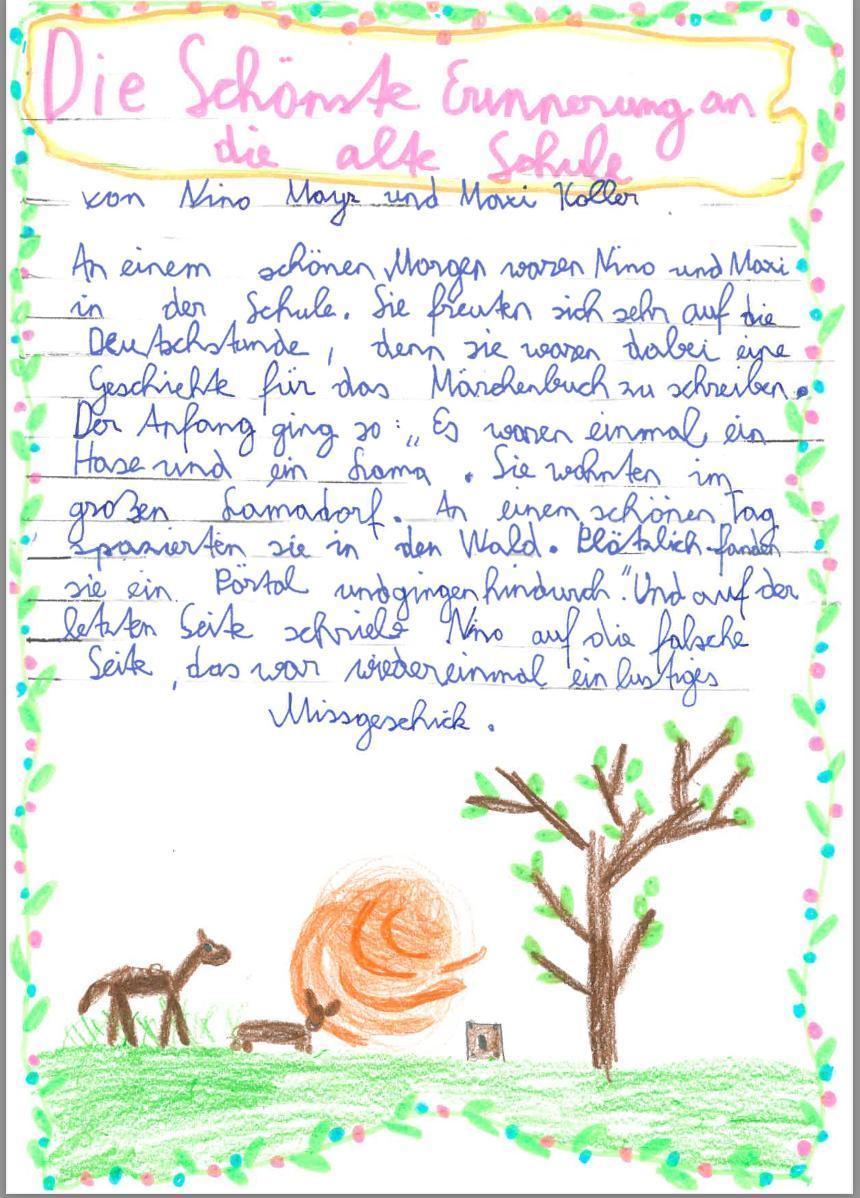 Die Schönste Erinnerung an
die alte Schule
von Nino Mayr und Maxi Koller
An einem schönen Morgen waren Nino und Maxi
in der Schule. Sie freuten sich sehr auf die
Deutschstunde, denn sie waren dabei eine
Geschichte für das Märchenbuch zu schreiben.
Der Anfang ging so: „Es waren einmal ein
Hase und ein Lama. Sie wohnten im
großen Lamadorf. An einem schönen Tag
spazierten sie in den Wald. Plötzlich fanden
sie ein Portal und gingen hindurch." Und auf der
letzten Seite schrieb Nino auf die falsche
Seite, das war wiedereinmal ein lustiges
Missgeschick.